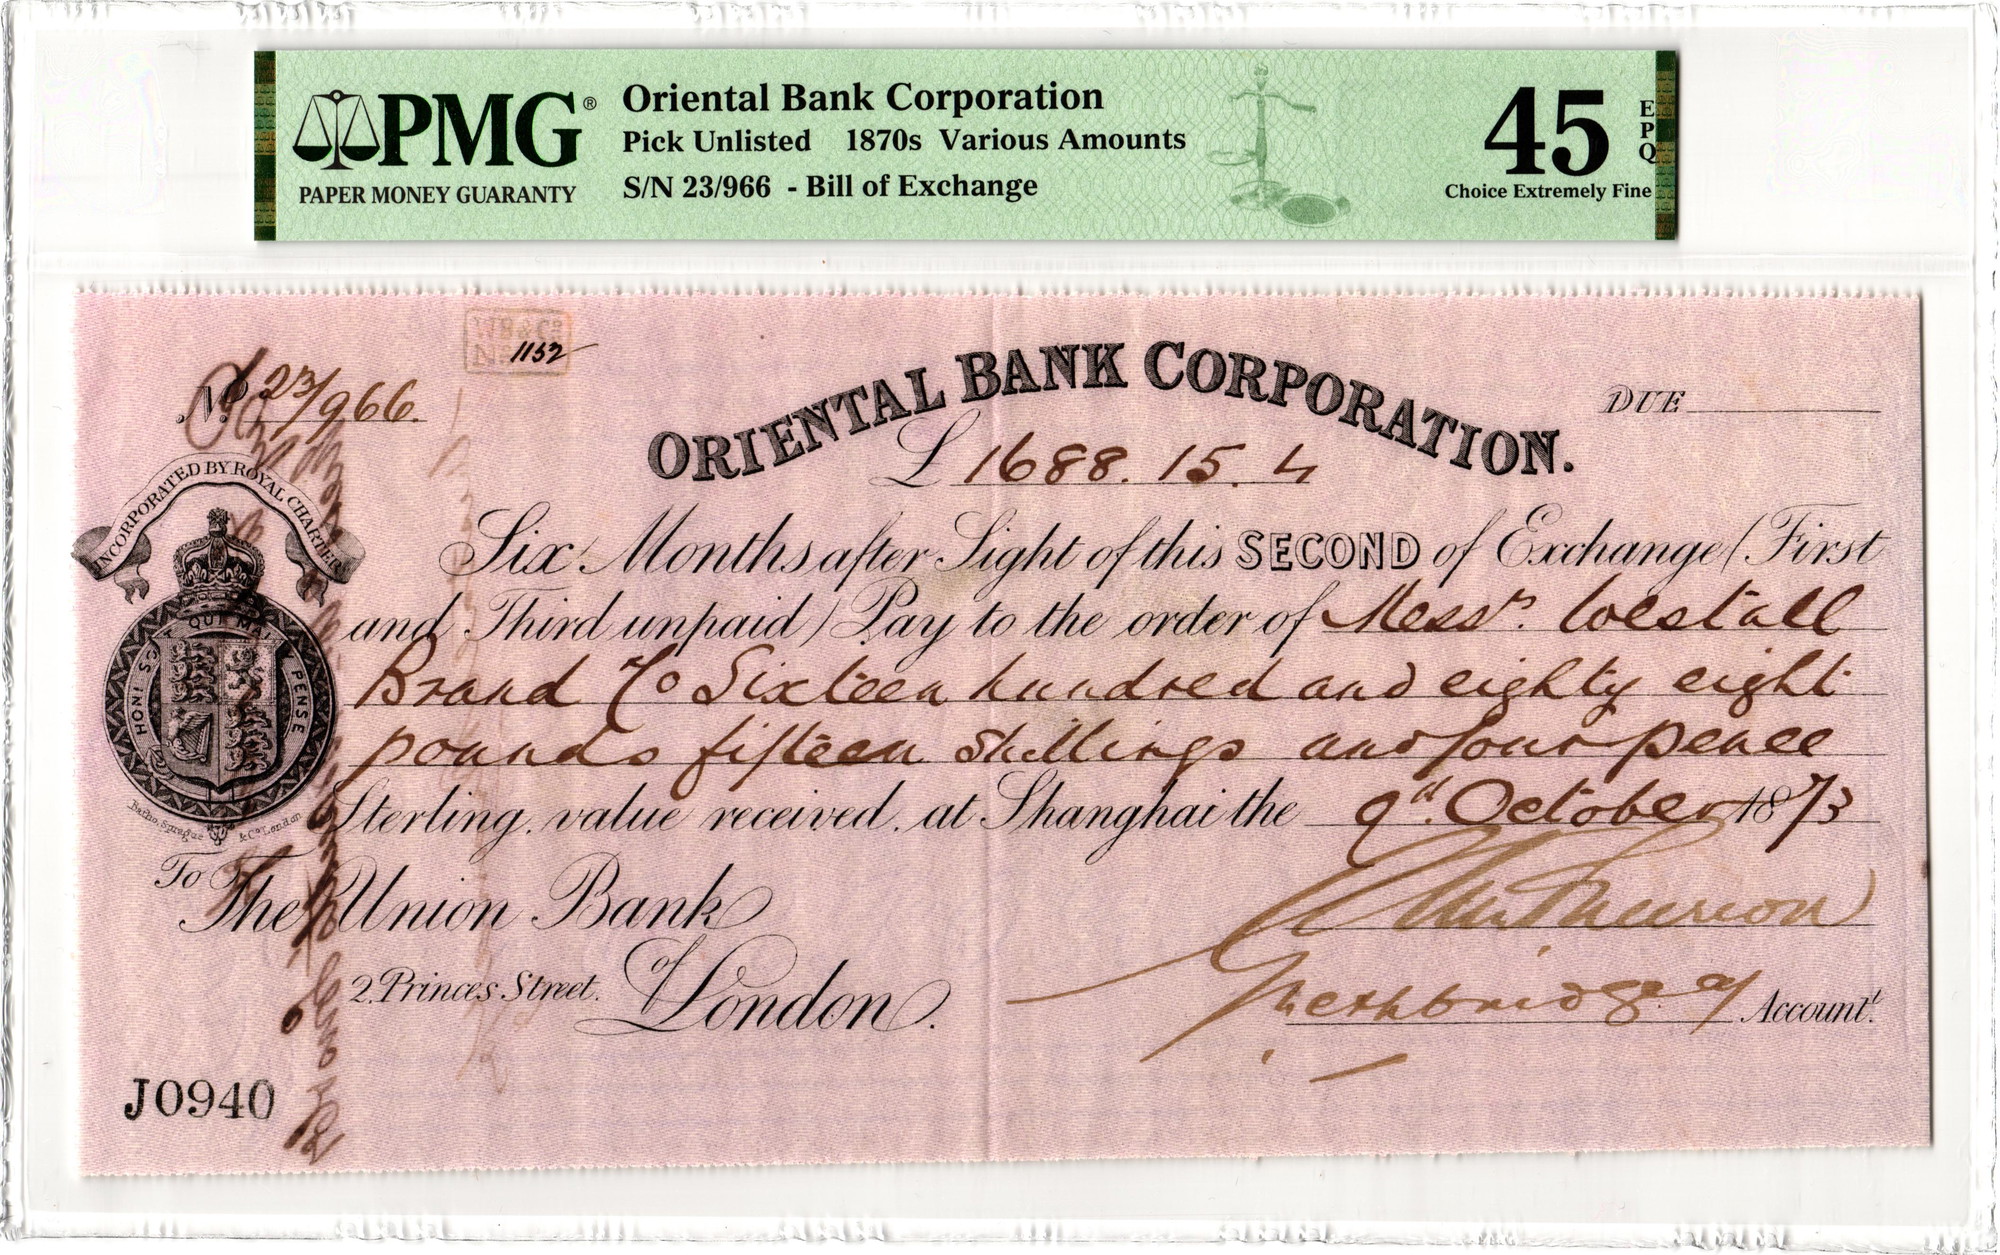 PMG®
PAPER MONEY GUARANTY
Oriental Bank Corporation
Pick Unlisted 1870s Various Amounts
S/N 23/966 - Bill of Exchange
45
EPQ
Choice Extremely Fine
1152
No. 23/966.
ORIENTAL BANK CORPORATION.
DUE
£ 1688. 15. 4
INCORPORATED BY ROYAL CHARTER
Six Months after Sight of this SECOND of Exchange (First
and Third unpaid) Pay to the order of Messrs. Westall
Brand & Co Sixteen hundred and eighty eight
pounds fifteen shillings and four pence
Sterling, value received, at Shanghai the 9th October 1873
HONI SOIT QUI MAL PENSE
Batho, Sprague & Co. London
To
The Union Bank
of
2, Princes Street. London.
Account.t
J0940